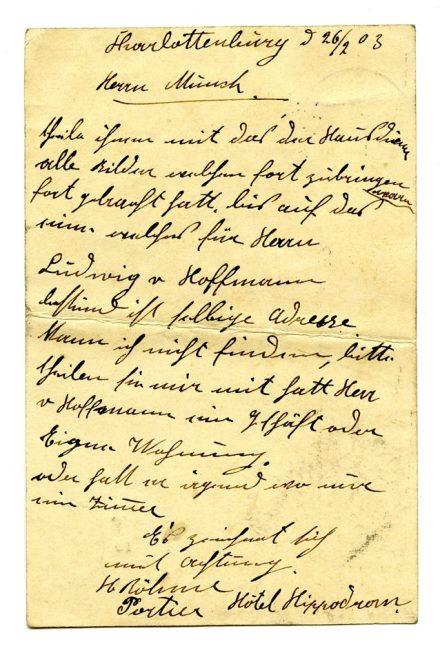 Charlottenburg d 26/2 03
Herrn Münch.
theile ihnen mit das der Hausdiener
alle Bilder welche fort zubringen
waren
fort gebracht hatt. bis auf das
eine welches für Herrn
Ludwig v Hoffmann
bestimt ist selbige Adresse
kann ich nicht finden, bitte
theilen sie mir mit hatt Herr
v Hoffmann ein Geschäft oder
Eigne Wohnung.
oder hatt er irgend wo nur
ein Zimmer
Es zeichnet sich
mit achtung.
H Böhme
Portier Hôtel Hippodrom.